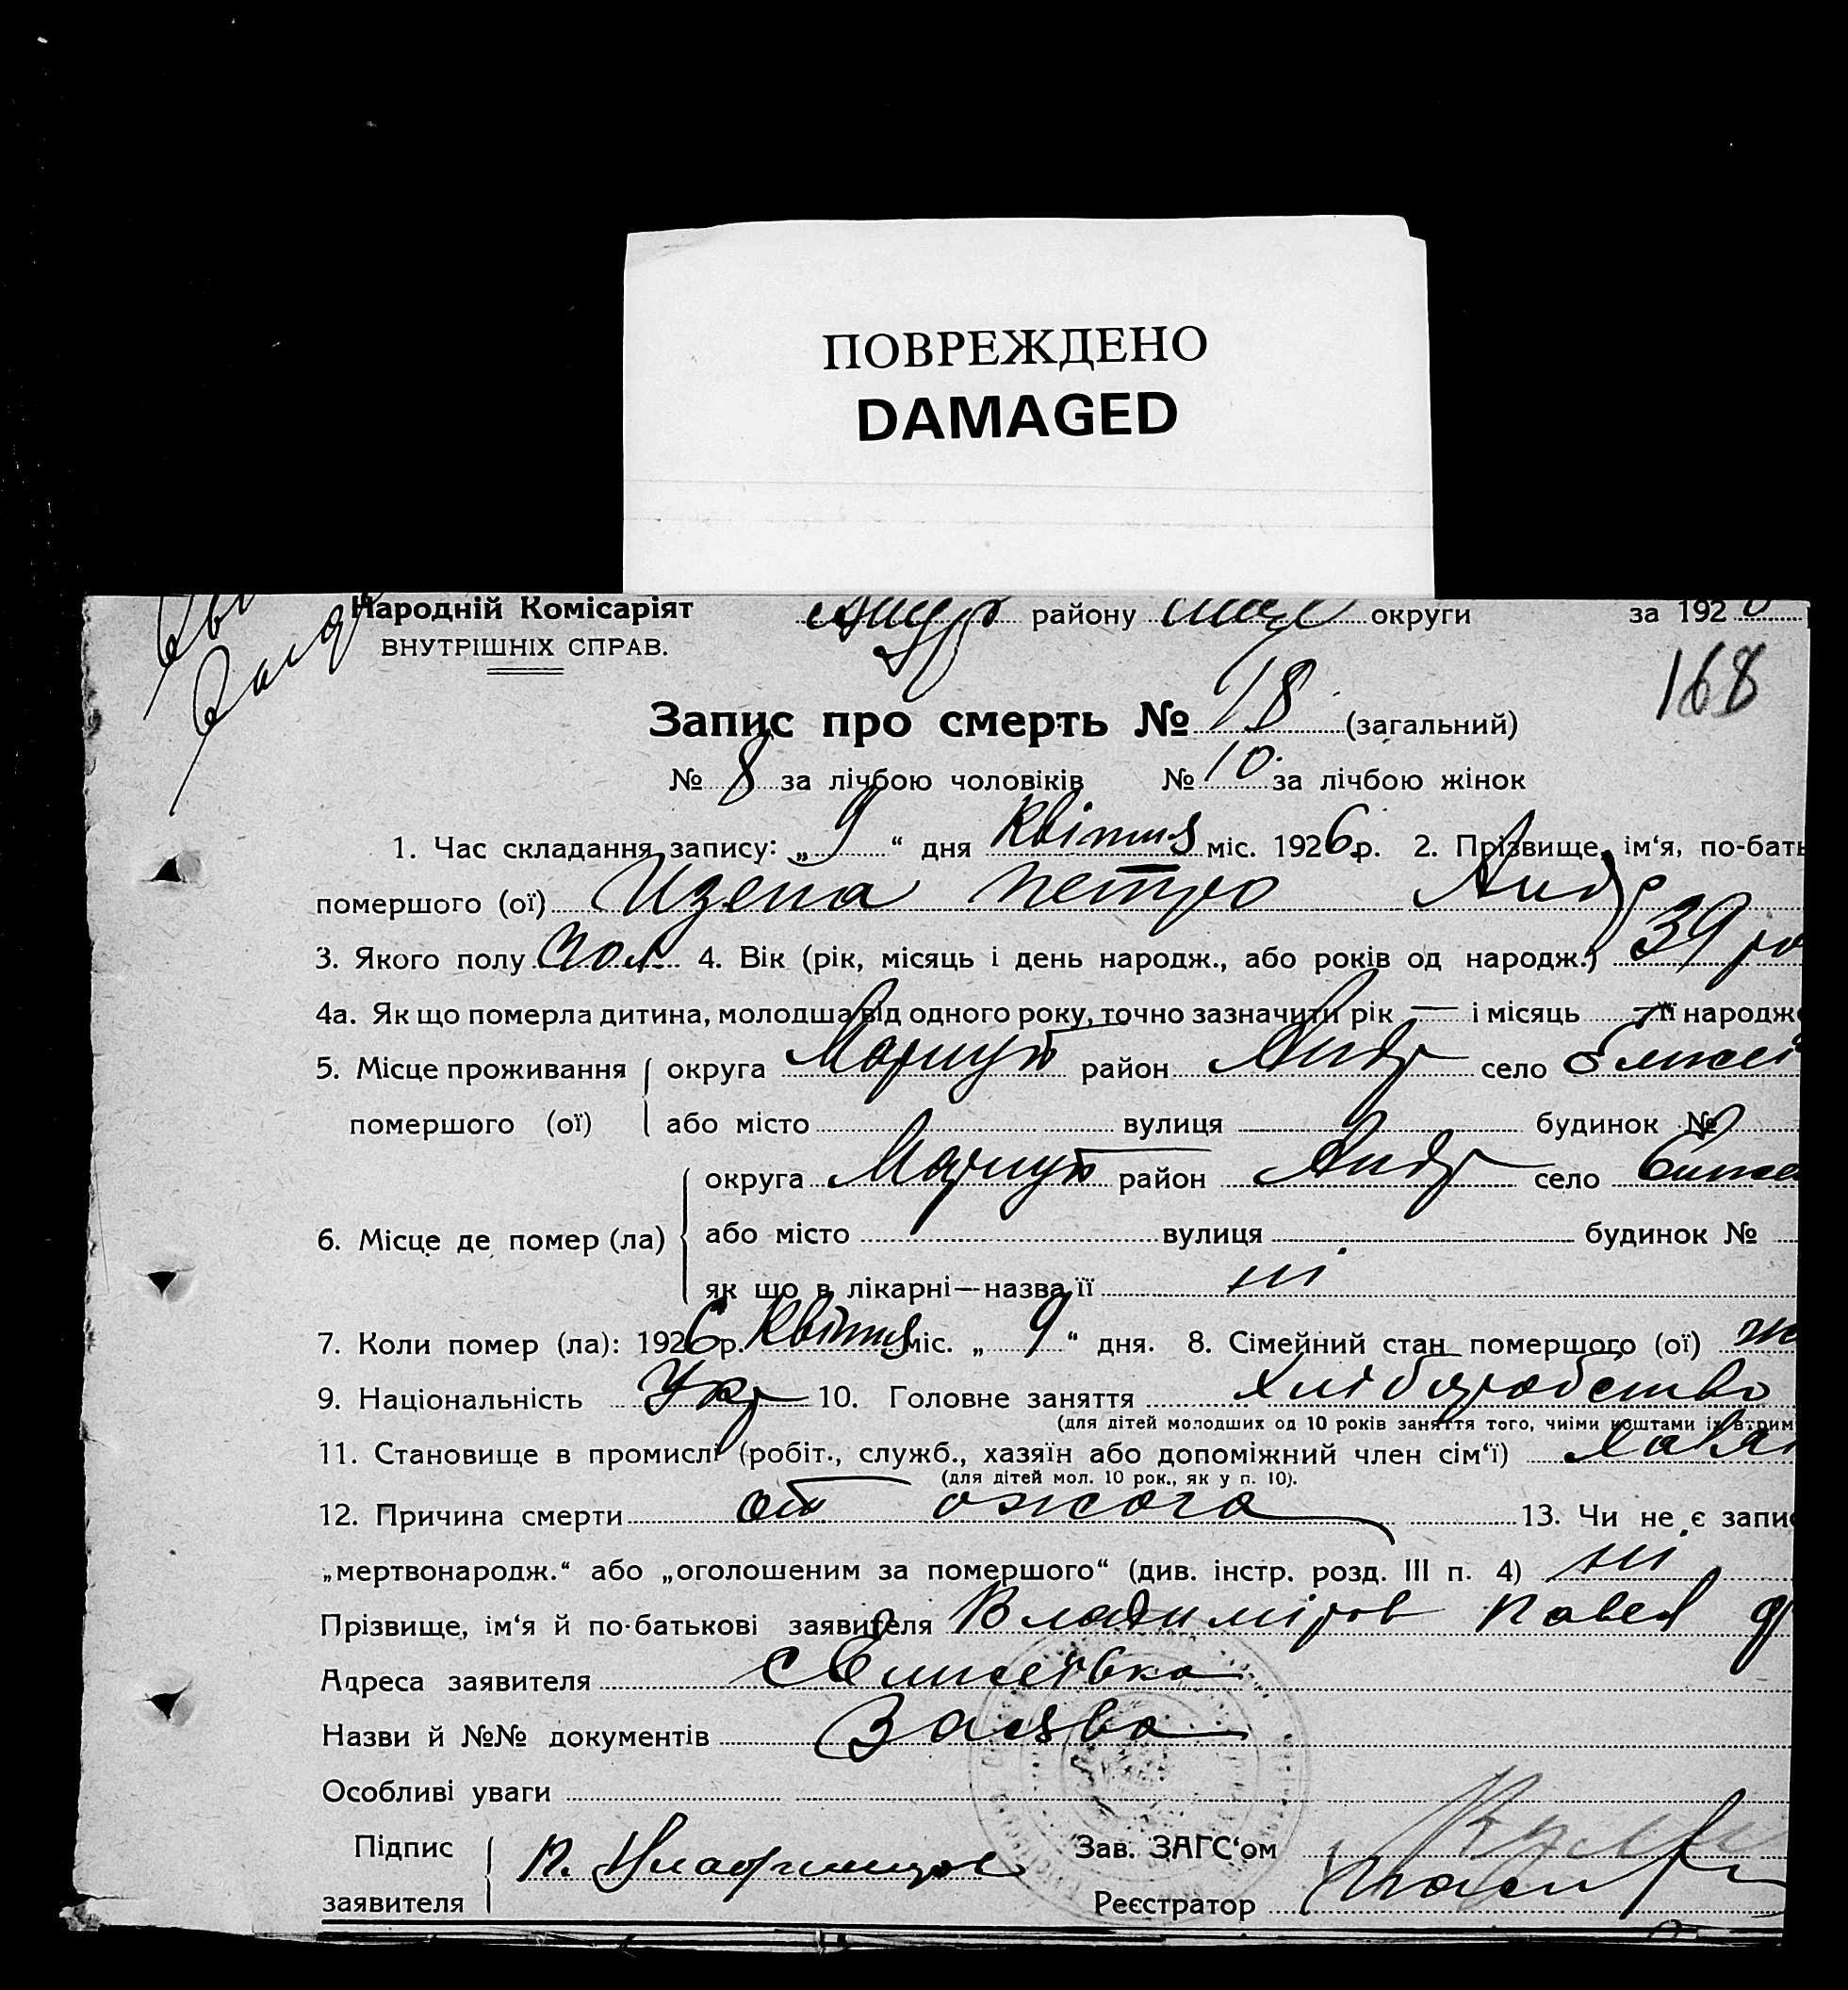 ПОВРЕЖДЕНО
DAMAGED
Народній Комісаріят
району округи за 192
ВНУТРІШНІХ СПРАВ.
168
Запис про смерть № 18 (загальний)
№ 8 за лічбою чоловіків № 10 за лічбою жінок
1. Час складання запису: „ 9 “ дня Квітня міс. 1926 р. 2. Прізвище, ім‘я, по-бать
помершого (ої) Петро Андр
3. Якого полу чол 4. Вік (рік, місяць і день народж., або років од народж.) 39 ро
4а. Як що померла дитина, молодша від одного року, точно зазначити рік — і місяць — її народж
5. Місце проживання округа Маріуп район Андр село
помершого (ої) або місто вулиця будинок №
округа Маріуп район Андр село
6. Місце де помер (ла) або місто вулиця будинок №
як що в лікарні—назва її ні
7. Коли помер (ла): 1926 р. Квітня міс. „ 9 “ дня. 8. Сімейний стан помершого (ої) ж
9. Національність Укр 10. Головне заняття хліборобство
(для дітей молодших од 10 років заняття того, чиїми коштами їх втрим
11. Становище в промислі (робіт., служб., хазяїн або допоміжний член сім‘ї) хазя
(для дітей мол. 10 рок., як у п. 10).
12. Причина смерти от ожога 13. Чи не є запи
„мертвонародж.“ або „оголошеним за помершого“ (див. інстр. розд. III п. 4) ні
Прізвище, ім‘я й по-батькові заявителя Владиміров Павел
Адреса заявителя
Назви й №№ документів Заява
Особливі уваги
Підпис Зав. ЗАГС‘ом
заявителя Реєстратор